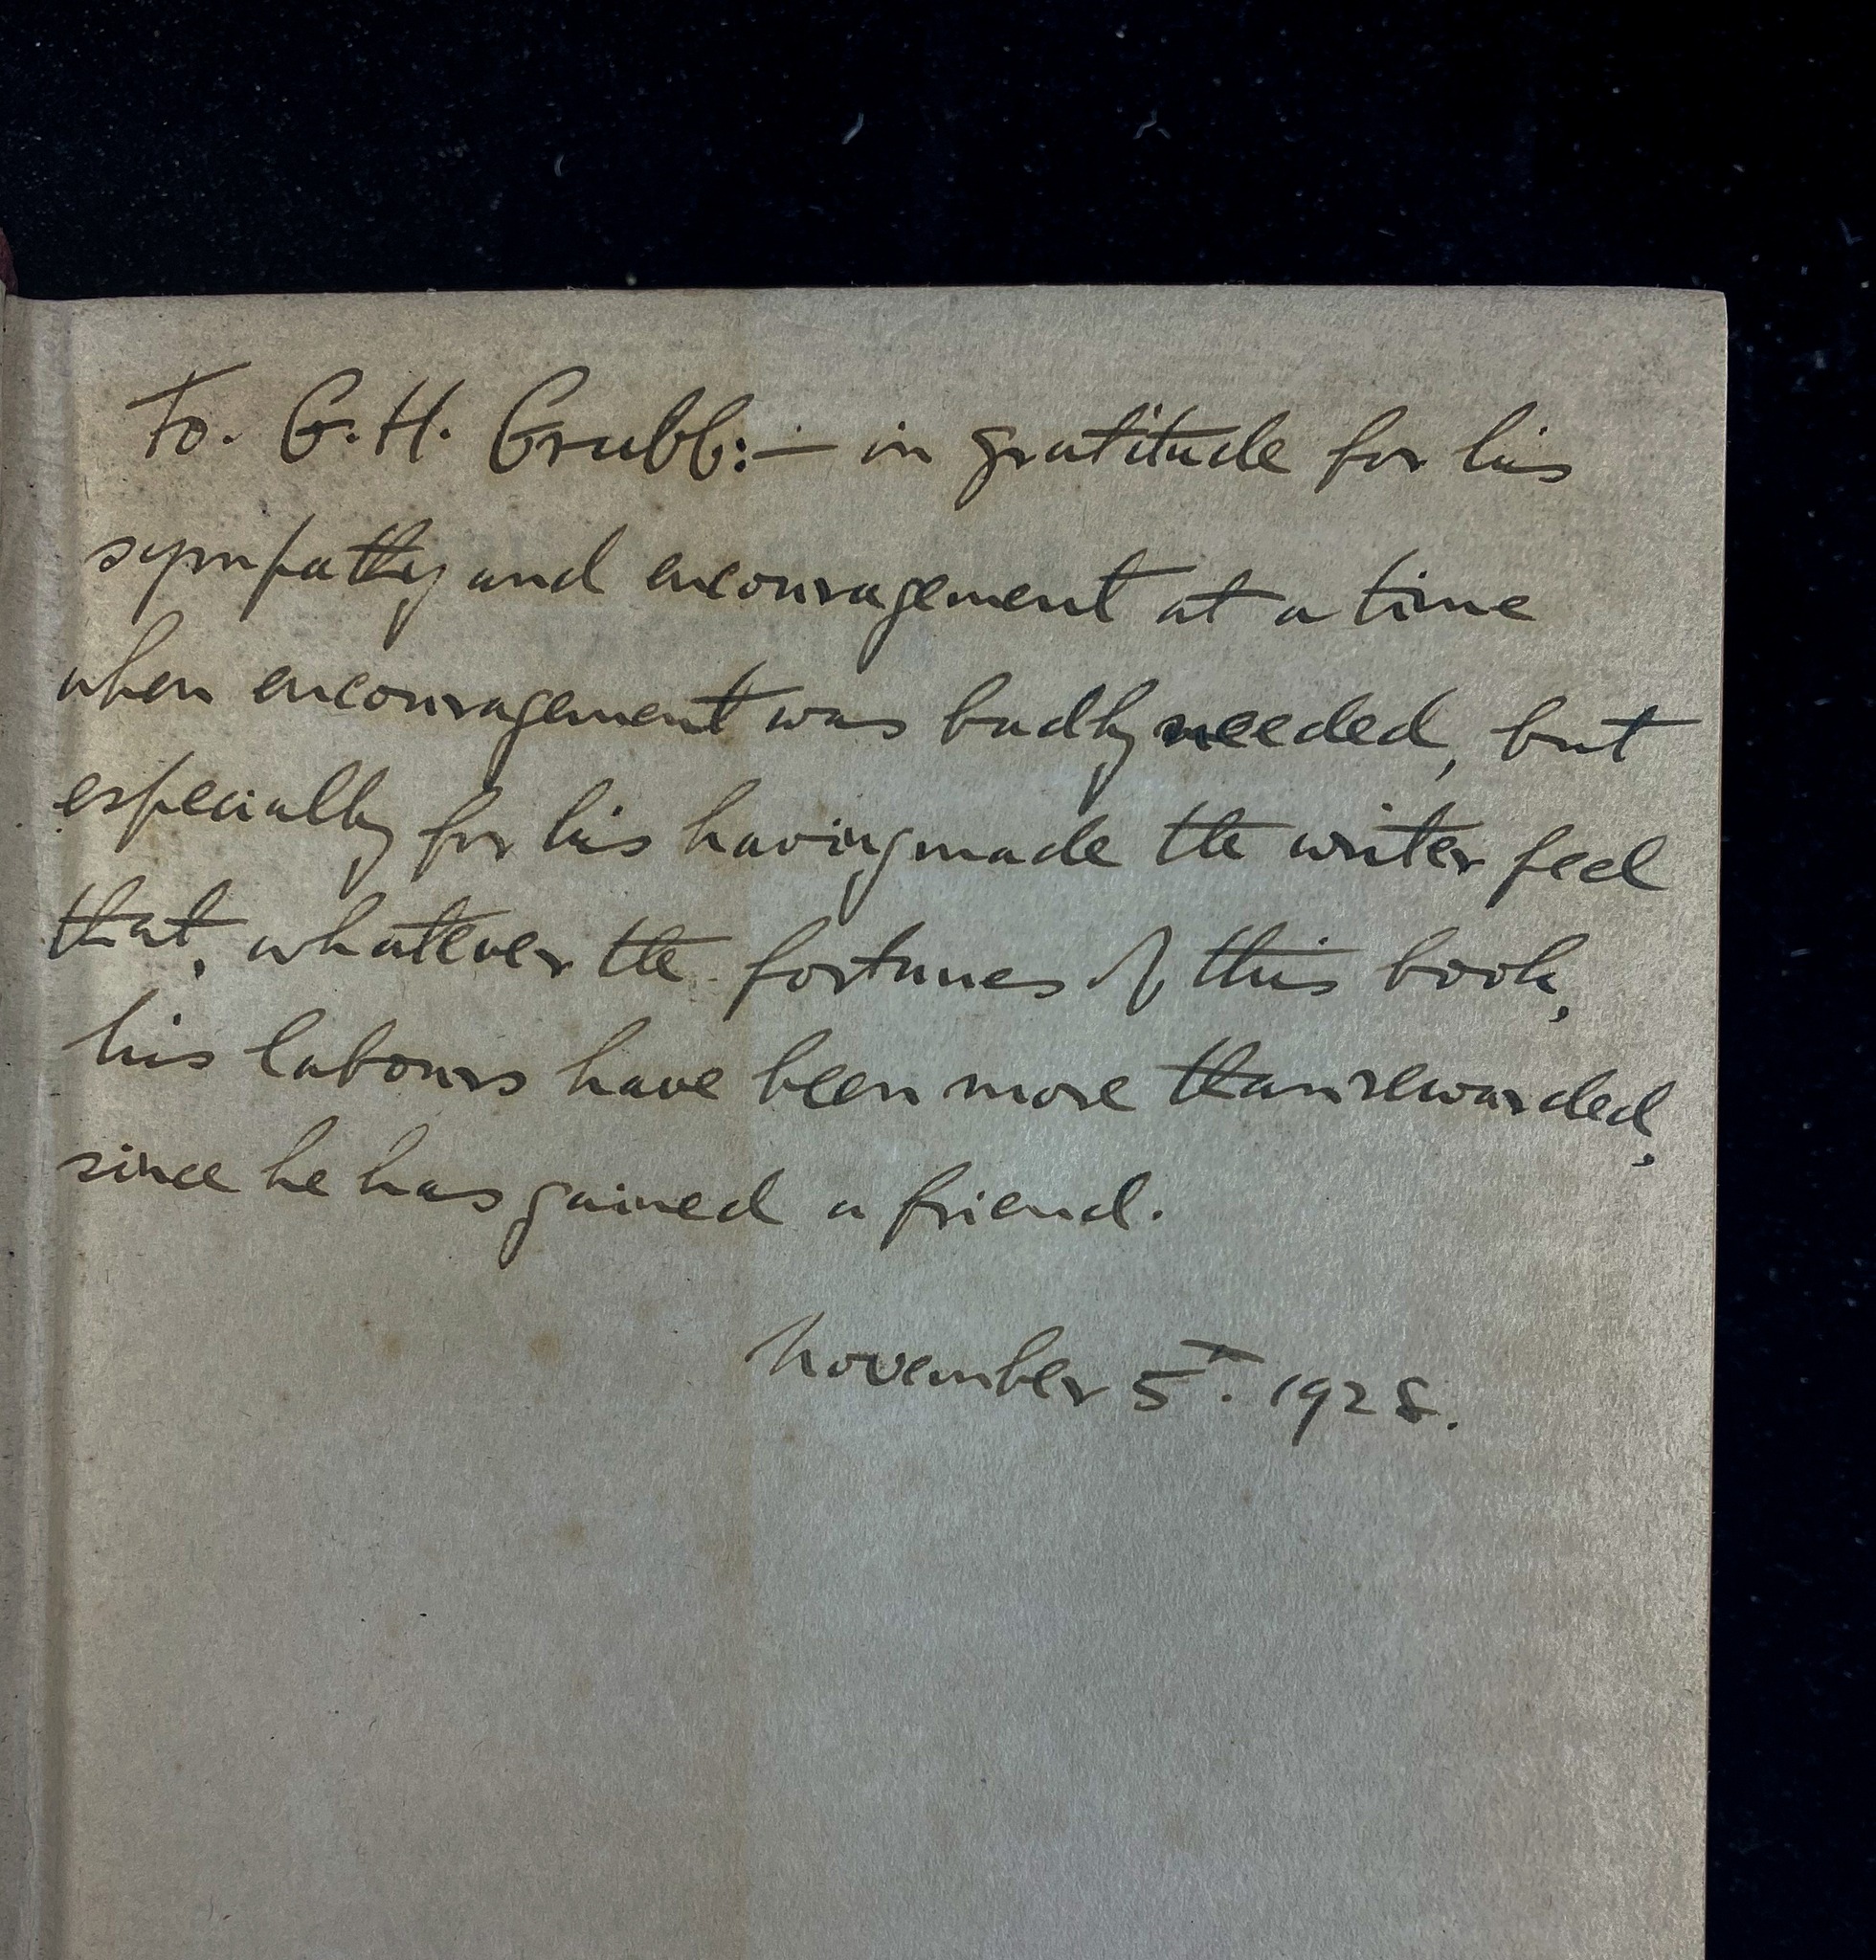 To. G.H. Grubb:— in gratitude for his
sympathy and encouragement at a time
when encouragement was badly needed, but
especially for his having made the writer feel
that, whatever the fortunes of this book,
his labours have been more than rewarded,
since he has gained a friend.
November 5th. 1928.